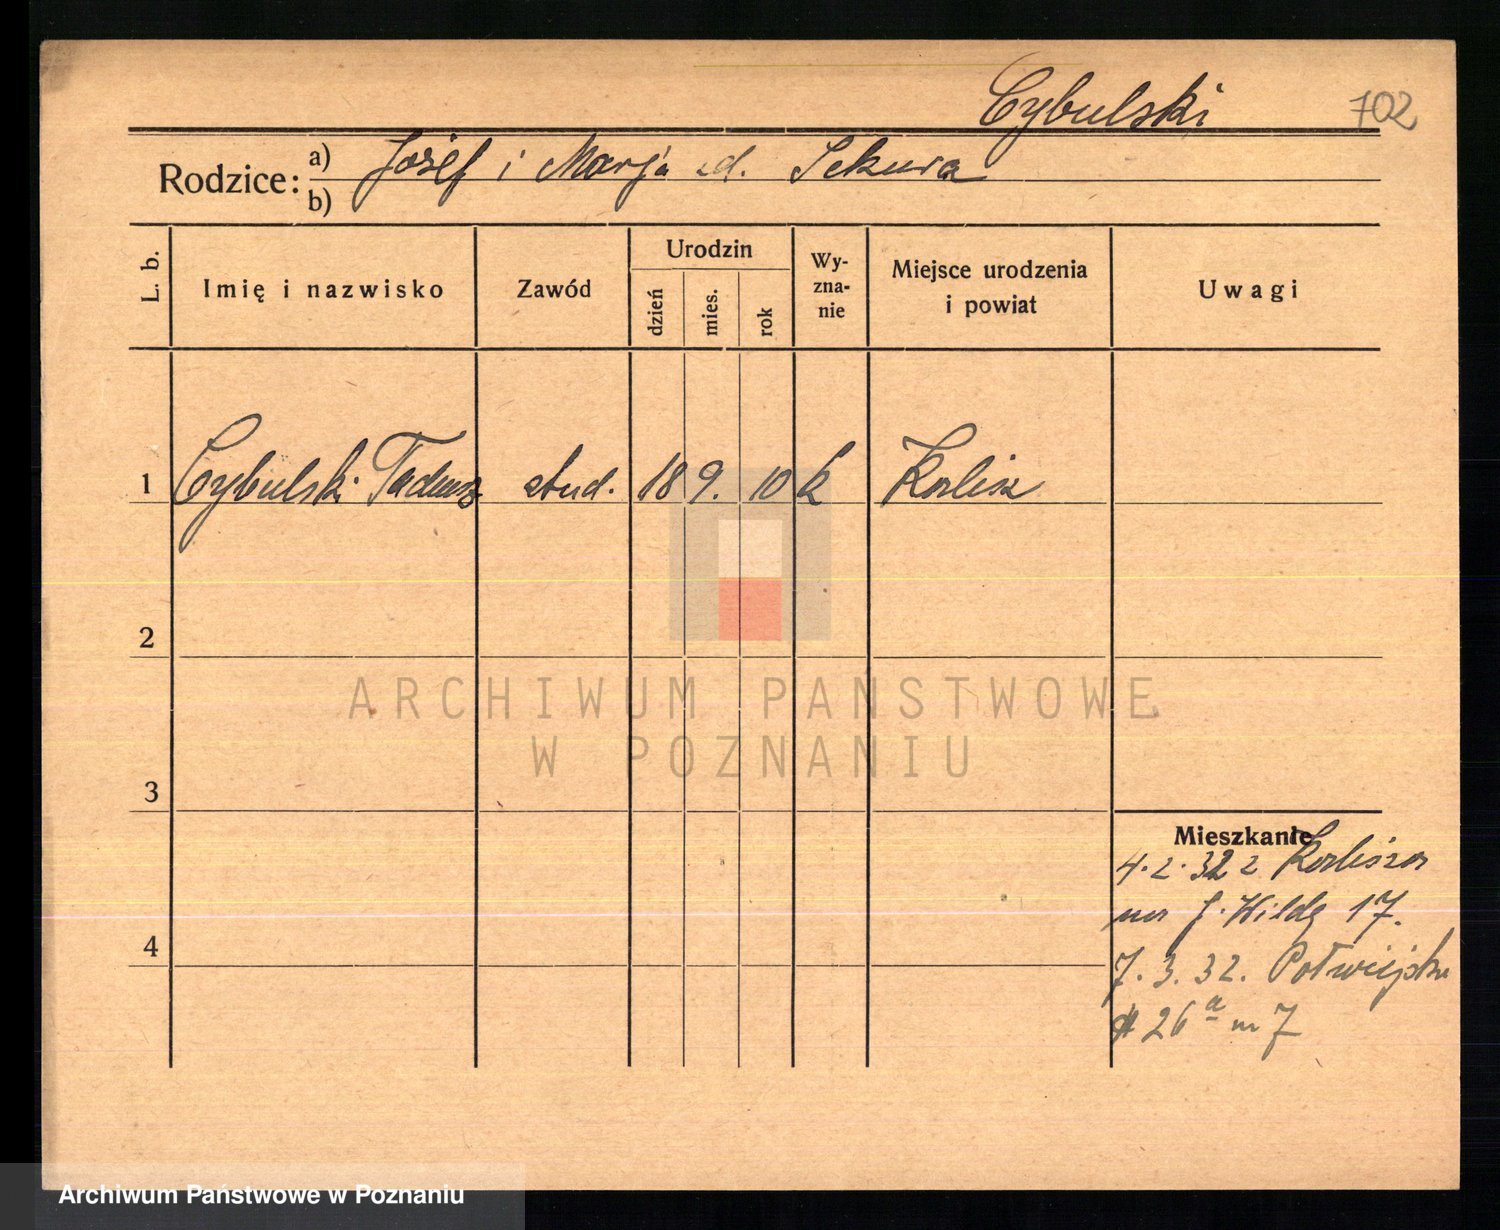 Cybulski 702
Rodzice: a) Józef i Marja zd. Sekura
b)
L. b.
Imię i nazwisko
Zawód
Urodzin
dzień
mies.
rok
Wy-
zna-
nie
Miejsce urodzenia
i powiat
Uwagi
1 Cybulski Tadeusz stud. 18 9. 10 k Kalisz
2
3
4
Mieszkanie
4.2.32 z Kalisza
na G. Wildę 17.
7.3.32. Półwiejska
26a m 7
ARCHIWUM PAŃSTWOWE
W POZNANIU
Archiwum Państwowe w Poznaniu